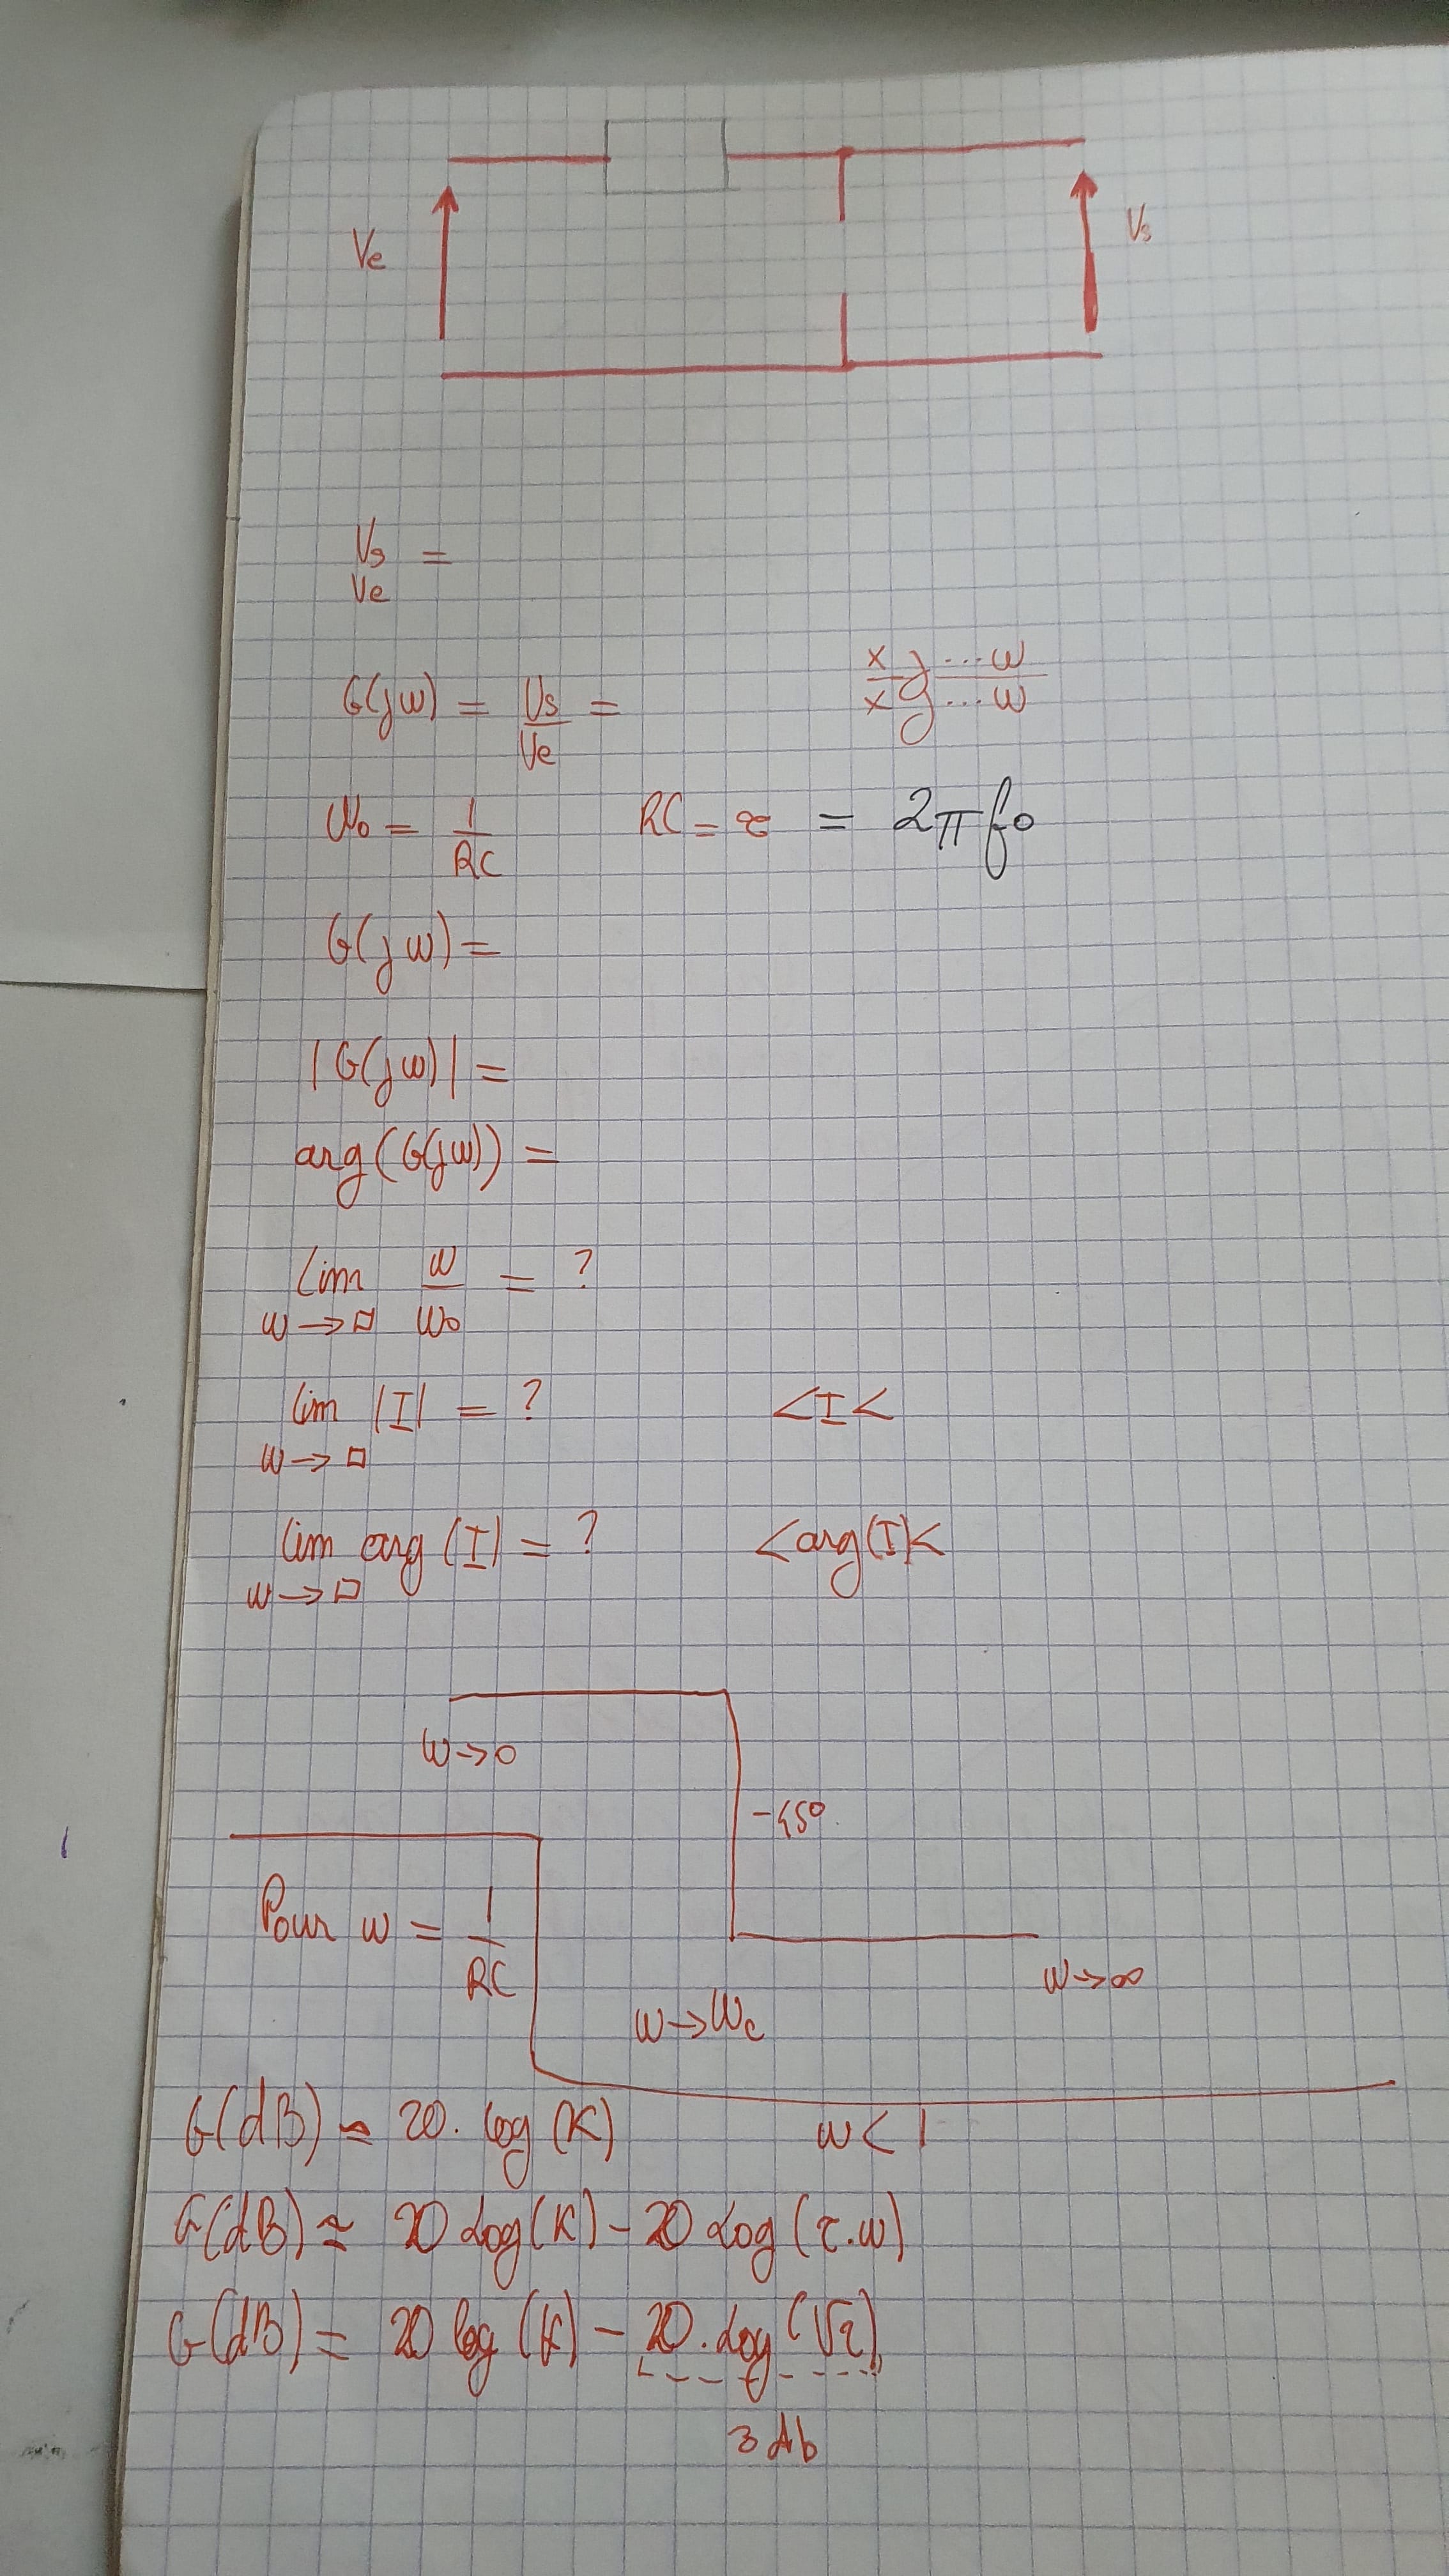 Ve
Vs
Vs =
Ve
G(jω) = Vs/Ve = x j...ω / x j...ω
ω₀ = 1/RC RC = τ = 2πf₀
G(jω) =
|G(jω)| =
arg(G(jω)) =
lim ω→□ ω/ω₀ = ?
lim ω→□ |I| = ? < I <
lim ω→□ arg(I) = ? < arg(I) <
ω→0
-45°
Pour ω = 1/RC
ω→∞
ω→ωc
G(dB) ≃ 20. log(K) ω < 1
G(dB) ≈ 20 Log(K) - 20 Log(τ.ω)
G(dB) = 20 log(K) - 20. Log(√2)
3 db